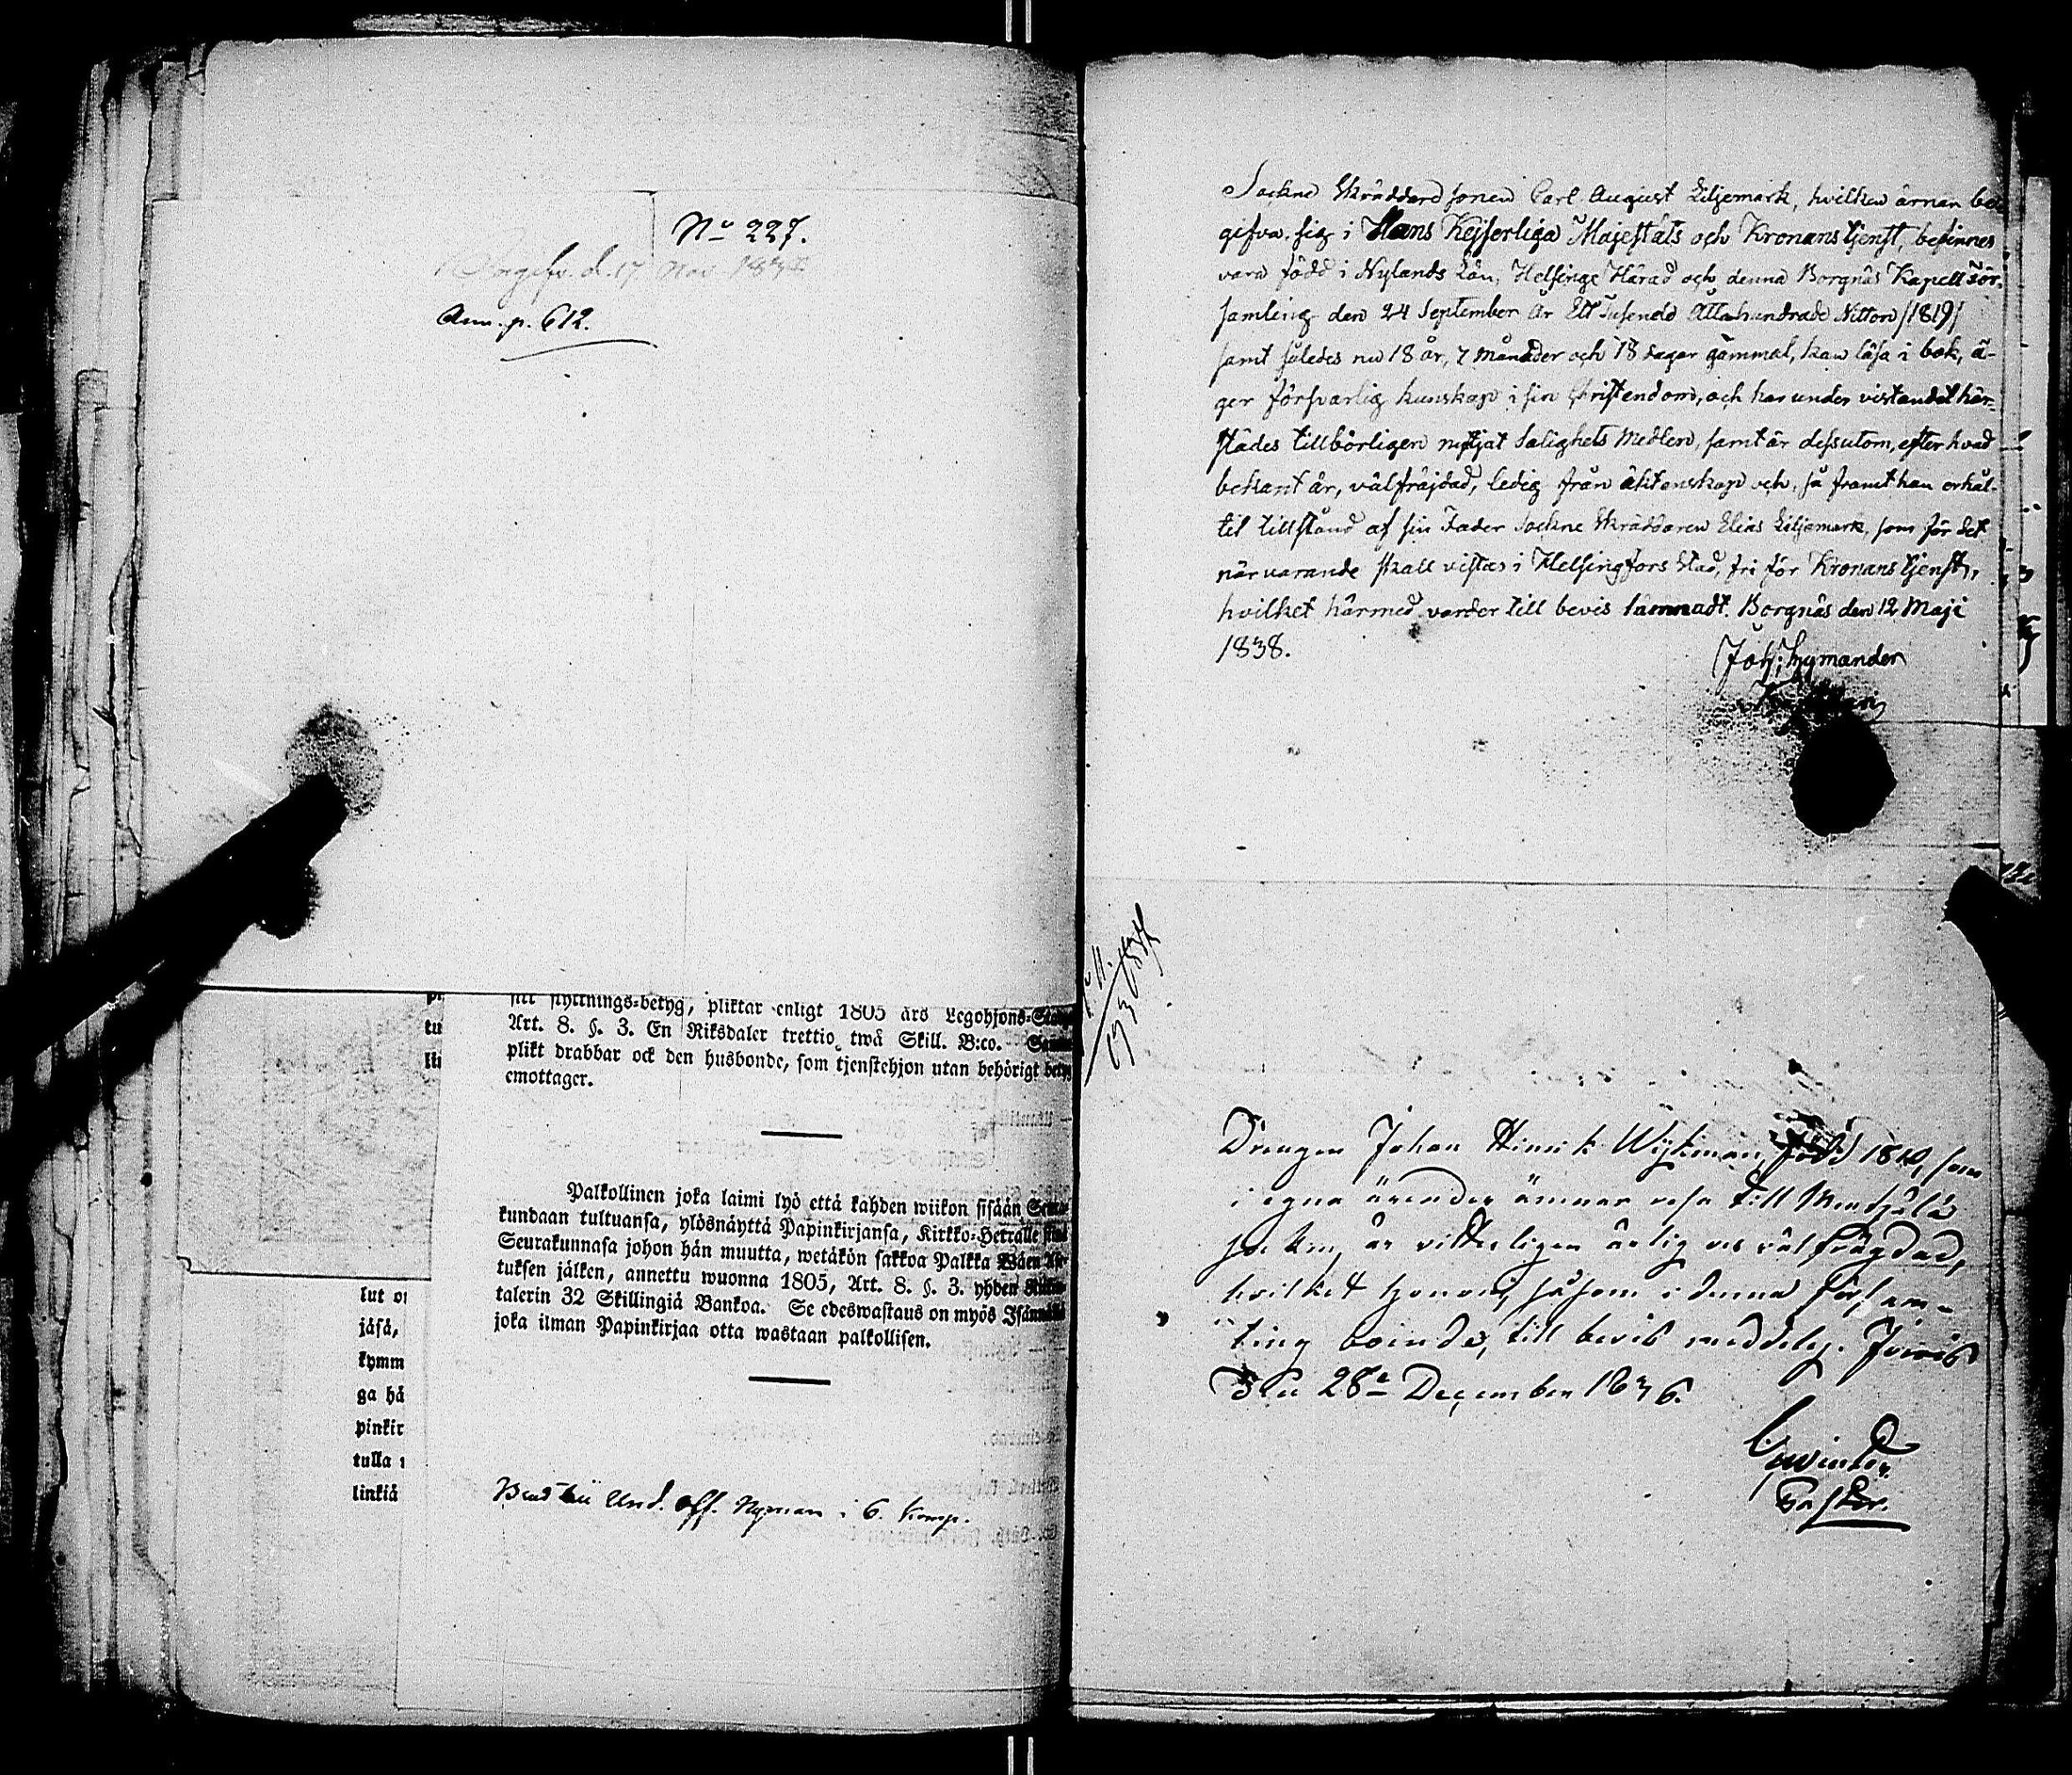 No 227.
d. 17 Nov. 1834
Ann. p. 612.
sitt flyttnings-betyg, pliktar enligt 1805 års Legohjons-
Art. 8. §. 3. En Riksdaler trettio två Skill. B:co.
plikt drabbar ock den husbonde, som tjenstehjon utan behörigt
emottager.
Palkollinen joka laimi lyö että kahden wiikon sisään
kundaan tultuansa, ylösnäyttä Papinkirjansa, Kirkko-Herralle
Seurakunnasa johon hän muutta, wetäkön sakkoa Palkka Wäen
tuksen jälken, annettu wuonna 1805, Art. 8. §. 3. yhden
talerin 32 Skillingiä Bankoa. Se edeswastaus on myös
joka ilman Papinkirjaa otta wastaan palkollisen.
lut
jäsä,
kymm
ga hä
pinkir
tulla
linkiä
Und. Off. Nyman i 6. Komp.
Sockne Skräddare sonen Carl August Liljemark, hvilken ärnar be-
gifva sig i Hans Kejserliga Majestäts och Kronans tjenst, befinnes
vara född i Nylands Län, Helsinge Härad och denna Borgnäs Kapell För-
samling den 24 September År Ett Tusende Åttahundrade Nitton /1819/
samt således nu 18 år, 7 månader och 18 dagar gammal, kan läsa i bok, ä-
ger försvarlig kunskap i sin Christendom, och har under vistandet här-
städes tillbörligen nyttjat Salighets Medlen, samt är dessutom, efter hvad
bekant är, välfräjdad, ledig från äktenskap och, så framt han erhål-
lit tillstånd af sin Fader Sockne Skräddaren Elias Liljemark, som för det
närvarande skall vistas i Helsingfors Stad, fri för Kronans tjenst,
hvilket härmed varder till bevis lämnadt. Borgnäs den 12 Maji
1838.
Joh: Hymander
Drengen Johan Hinrik Wijkman, född 1810, som
i egna ärender ämnar resa till Mentsälä
socken, är vitterligen ärlig och välfrägdad,
hvilket honom, såsom i denna försam-
ling boende, till bevis meddelas. Jorois
den 28de December 1836.
Pastor.